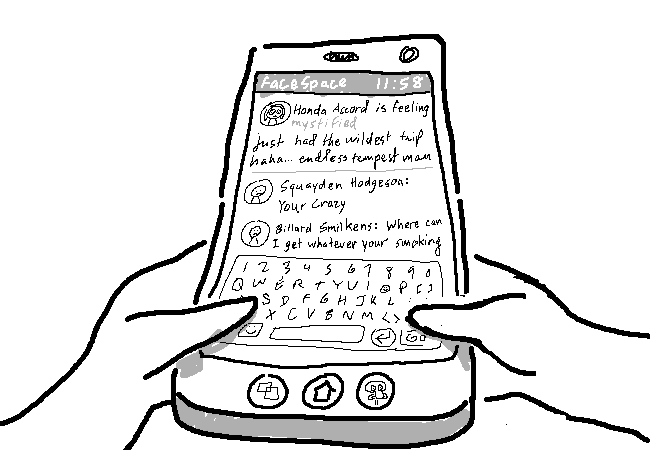 FaceSpace 11:58
Honda Accord is feeling
mystified
just had the wildest trip
haha... endless tempest man
Squayden Hodgeson:
Your Crazy
Billard Smilkens: Where can
I get whatever your smoking
1 2 3 4 5 6 7 8 9 0
Q W E R T Y U I O P [ ]
S D F G H J K L :
X C V B N M < >